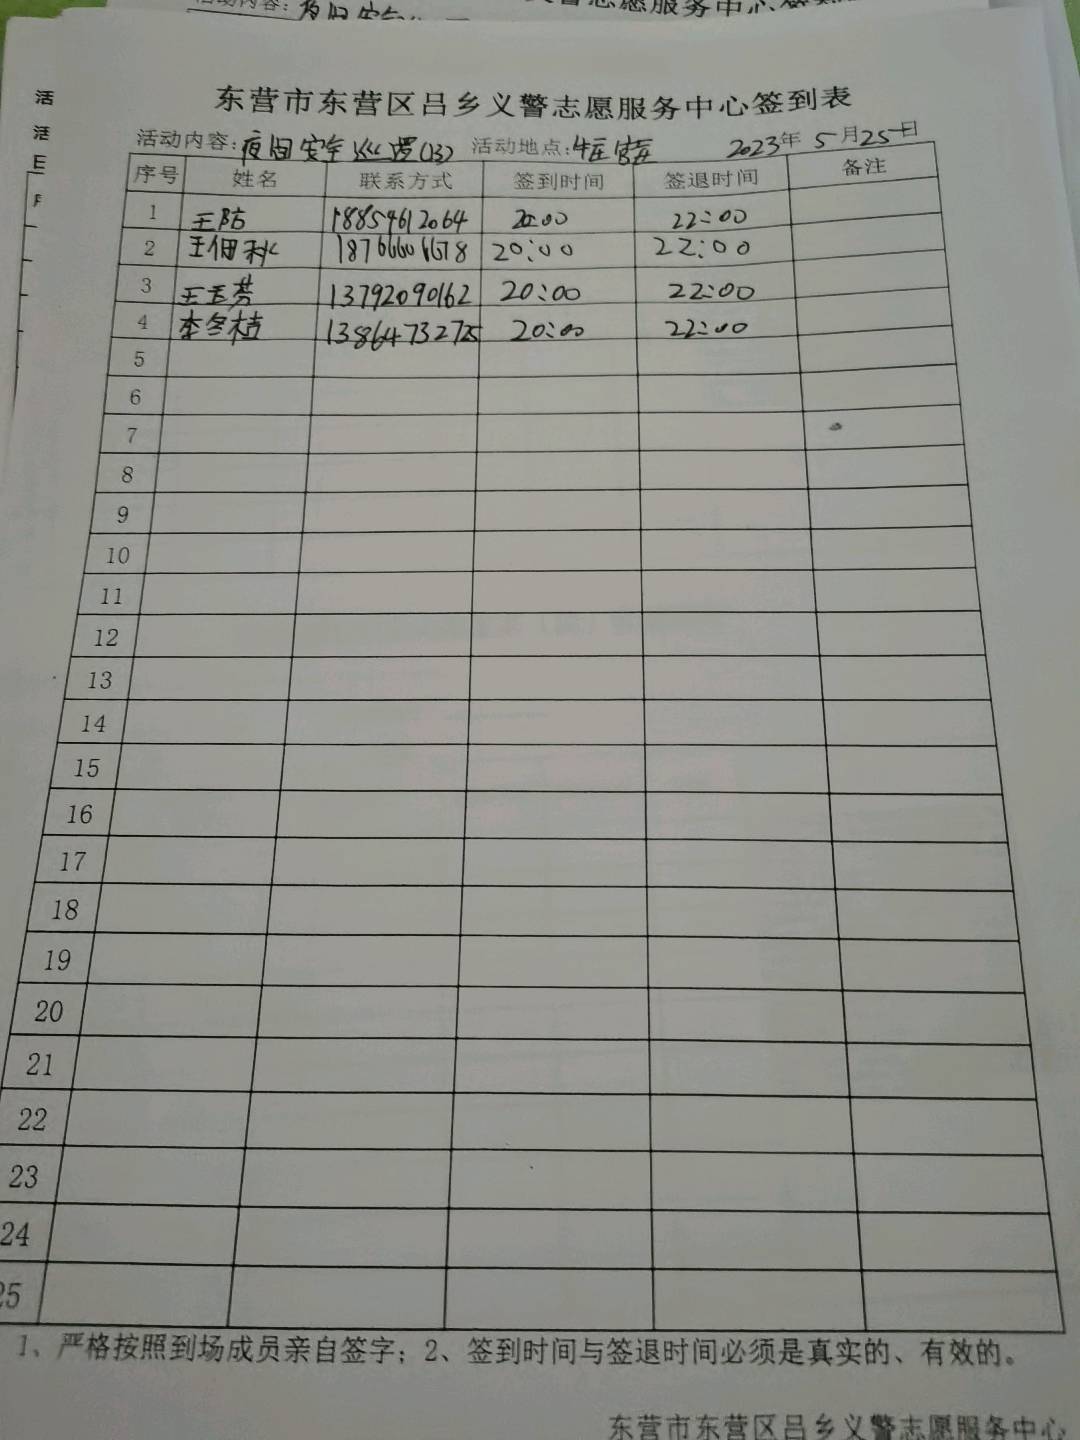 活动内容：夜间安全
东营市东营区吕乡义警志愿服务中心签到表
活动内容：夜间安全巡逻(13) 活动地点： 2023年5月25日
序号 姓名 联系方式 签到时间 签退时间 备注
1 王防 18859612064 20:00 22:00
2 王佃秋 20:00 22:00
3 王玉芳 13792090162 20:00 22:00
4 李冬植 13864732725 20:00 22:00
5
6
7
8
9
10
11
12
13
14
15
16
17
18
19
20
21
22
23
24
25
1、严格按照到场成员亲自签字；2、签到时间与签退时间必须是真实的、有效的。
东营市东营区吕乡义警志愿服务中心